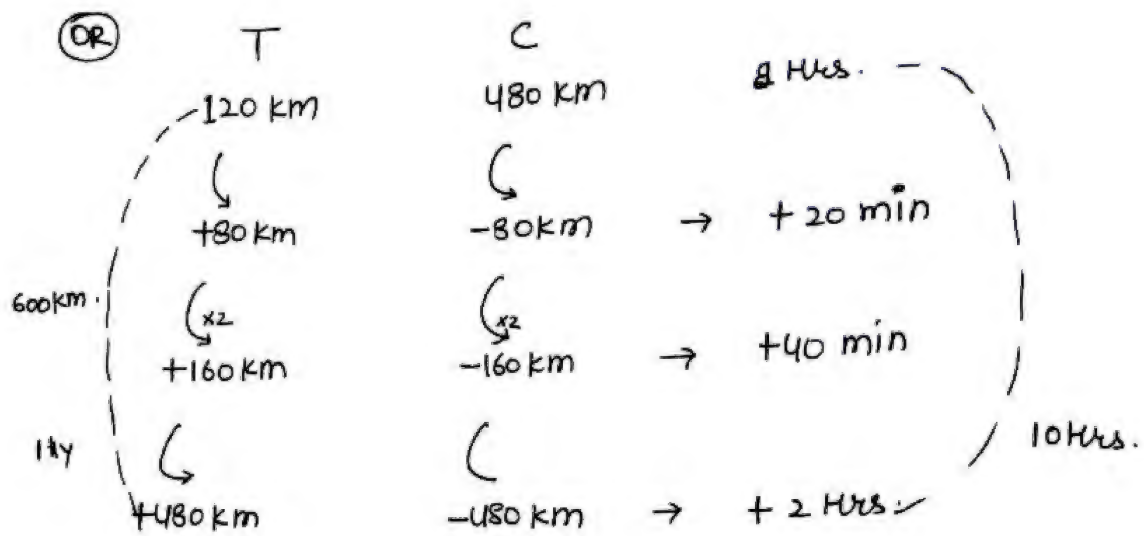 OR T C
120 km 480 km 8 Hrs.
+80 km -80km → +20 min
600km. x2 x2
+160 km -160 km → +40 min
lly 10 Hrs.
+480 km -480 km → + 2 Hrs.